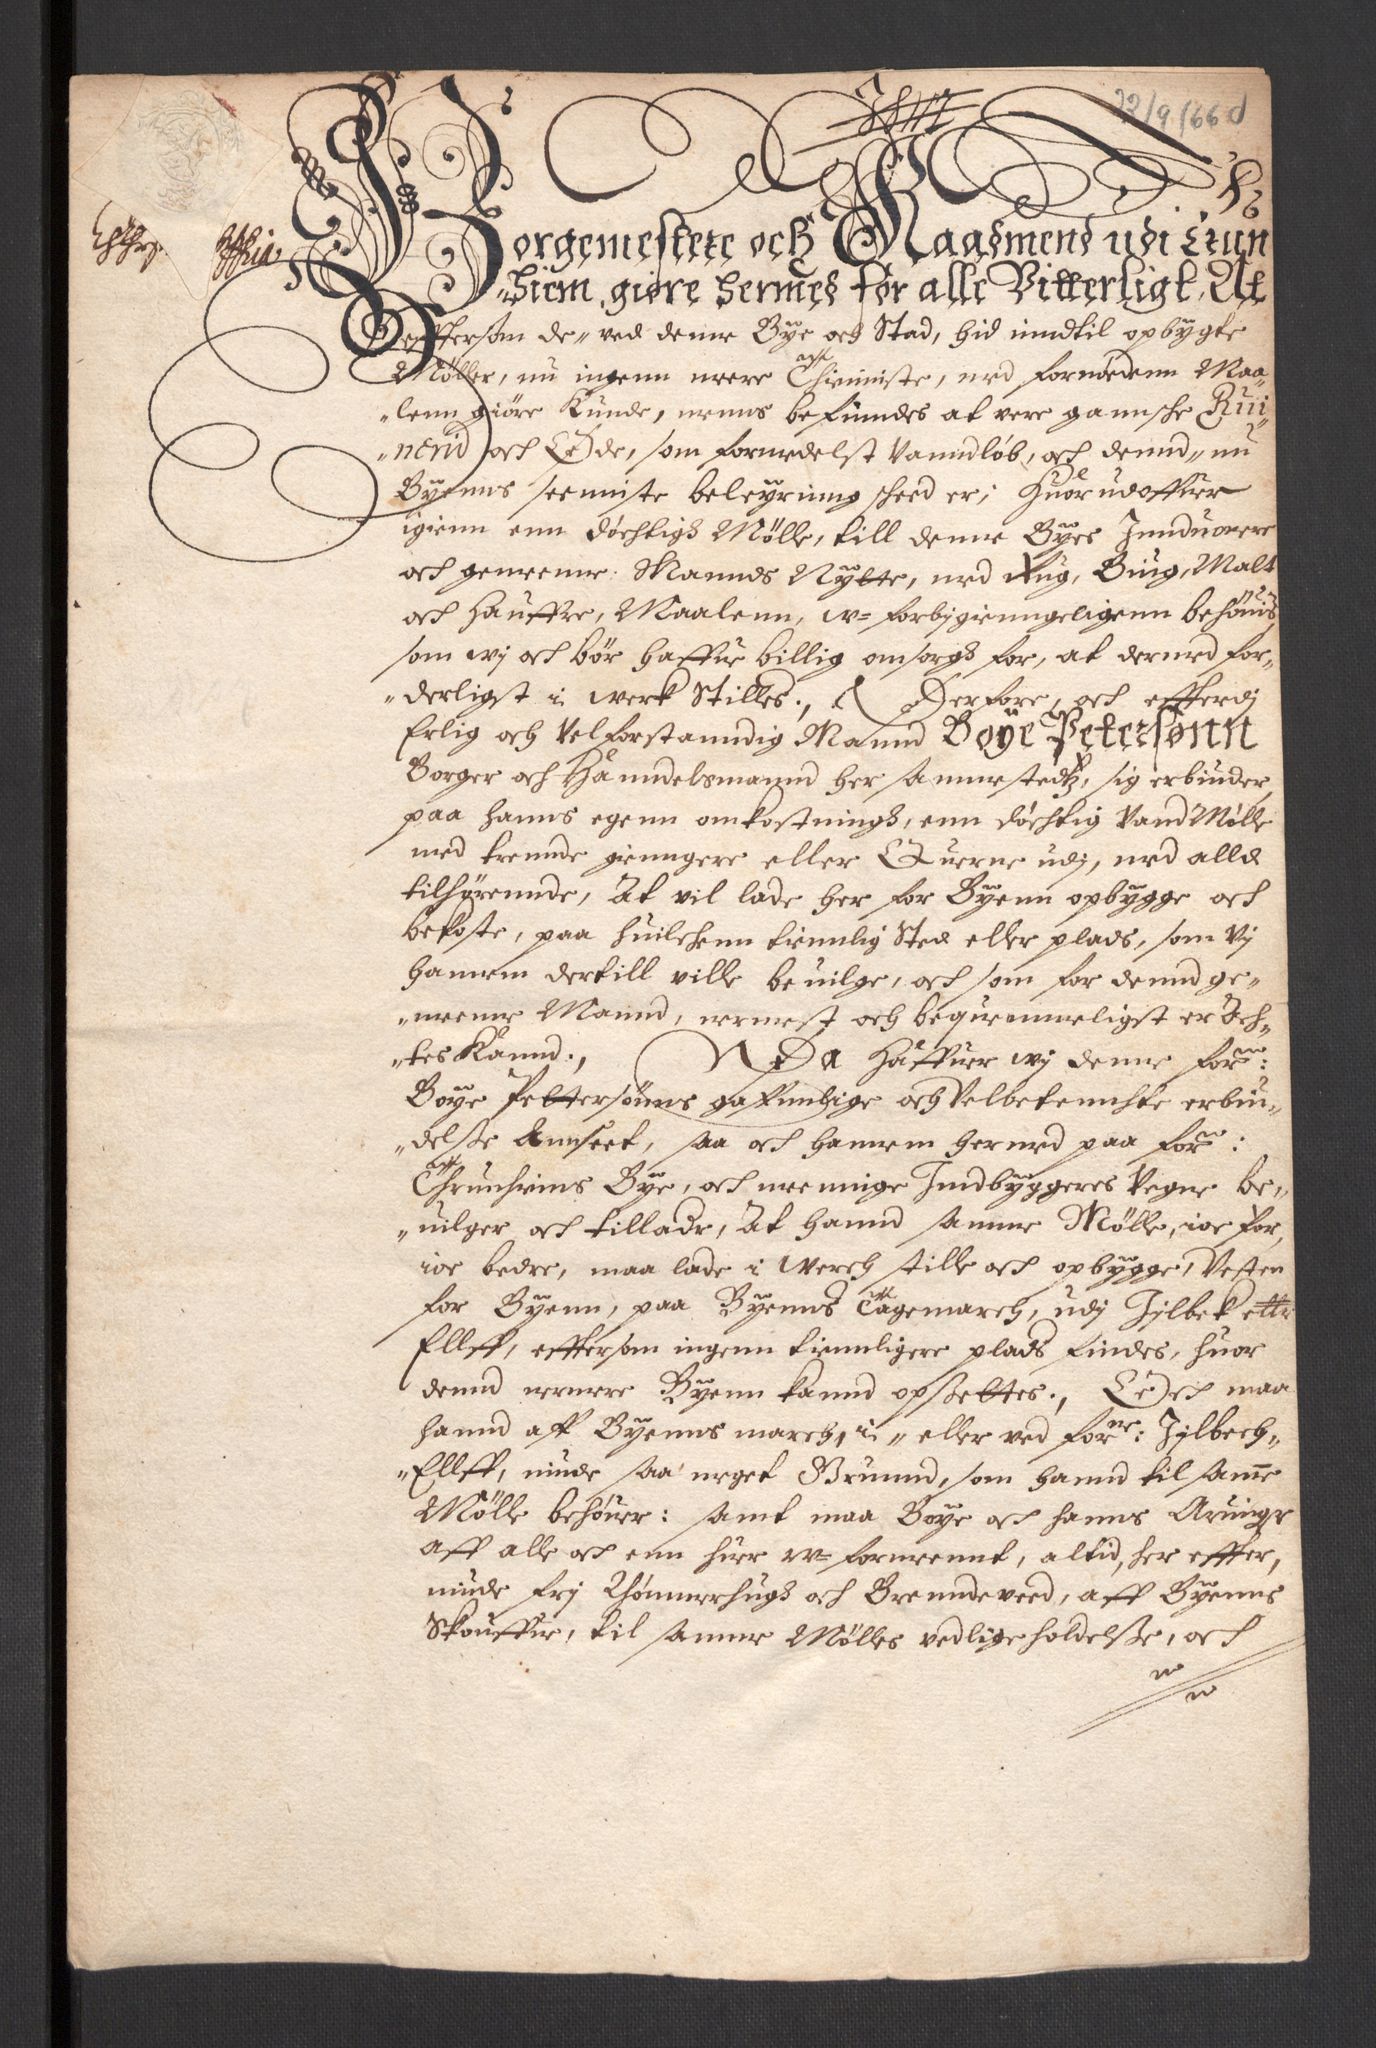 22/9 1660
Borgemestere och Raadmend udi Trun
„hiem, giøre hermed for alle Vitterligt, At
effterssom de„ ved denne Bÿe och Stad, hid inndtil opbÿgte
Møller, nu ingenn meere Thienniste, med fornødenn Maa„
„lenn giøre Kunde, menns befundes at vere gannsche Rui„
„nerid och Øde, som formedelst Vanndløb, och dennd„ nu
Bÿenns seeniste beleÿring scheed er; Huor udoffuer
igienn enn døchtigh Mølle, till denne Bÿes Innduonere
och gemeene Mannds Nÿtte, med Rug, Biug, Malt
och Hauffre, Maalenn, w= forbigienngeligenn behøuis,
som wj och bør haffue billig omsorgh for, at dermed for„
„derligst i werk Stilles., Derfore, och effterdj
Erlig och Velforstanndig Mannd Boÿe Petersønn
Borger och Hanndelsmannd her sammestedtz, sig erbiuder,
paa hanns egenn omkostningh, enn døchtig Vand Mølle
med trennde gienngere eller Querne udj, med alld
tilhørennde, At vil lade her for Bÿenn opbÿgge och
bekoste, paa huilchenn tiennlig Sted eller plads, som Vj
hannem dertill ville beuilge, och som for dennd ge„
„meene Mannd, nermest och bequemmeligst er„
„tes Kannd., Da Haffuer wj denne for:
Boÿe Pettersønns gaffnlige och Velbetennchte erbiu„
„delsse Annseet, saa och hannem hermed paa for:
Thrunhiems Bÿe, och meenige Inndbÿggeres Vegne be„
„uilger och tillade, At hannd samme Mølle, ioe før,
ioe bedre, maa lade i Werch stille och opbÿgge, Vesten
for Bÿenn, paa Bÿenns Tagemarch, udj Jlbek
Ellff, efftersom ingenn tiennligere plads findes, huor
dennd nermere Bÿenn kannd opsettes., Och maa
hannd aff Bÿenns march, i„ eller ved forne: Jlbech„
„Ellff, niude saa meget Grunnd, som hannd til samme
Mølle behøuer: samt maa Boÿe och hanns Aruinge
aff alle och enn huer w= formeennt, altid, her effter,
niude frj Thømmerhugh och Brenndeveed, aff Bÿenns
Skouffue, til samme Mølles vedligeholdelsse, och